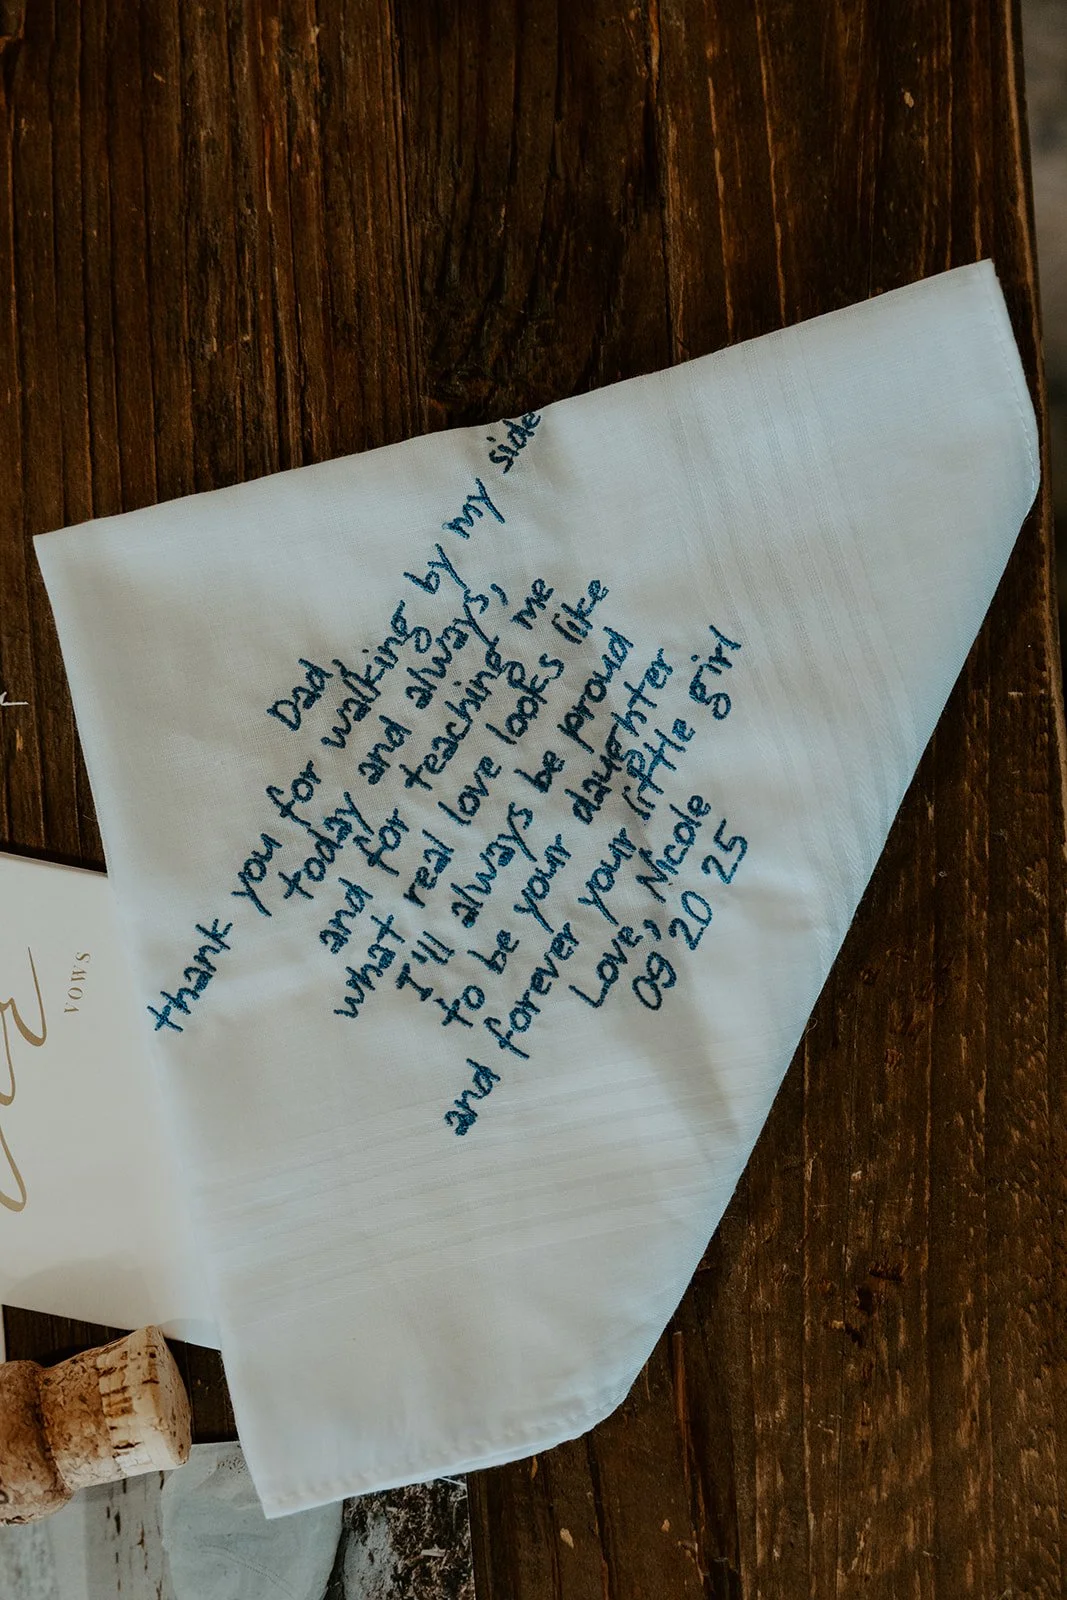 Dad
thank you for walking by my side
today and always,
and for teaching me
what real love looks like
I'll always be proud
to be your daughter
and forever your little girl
Love, Nicole
09 20 25
VOWS